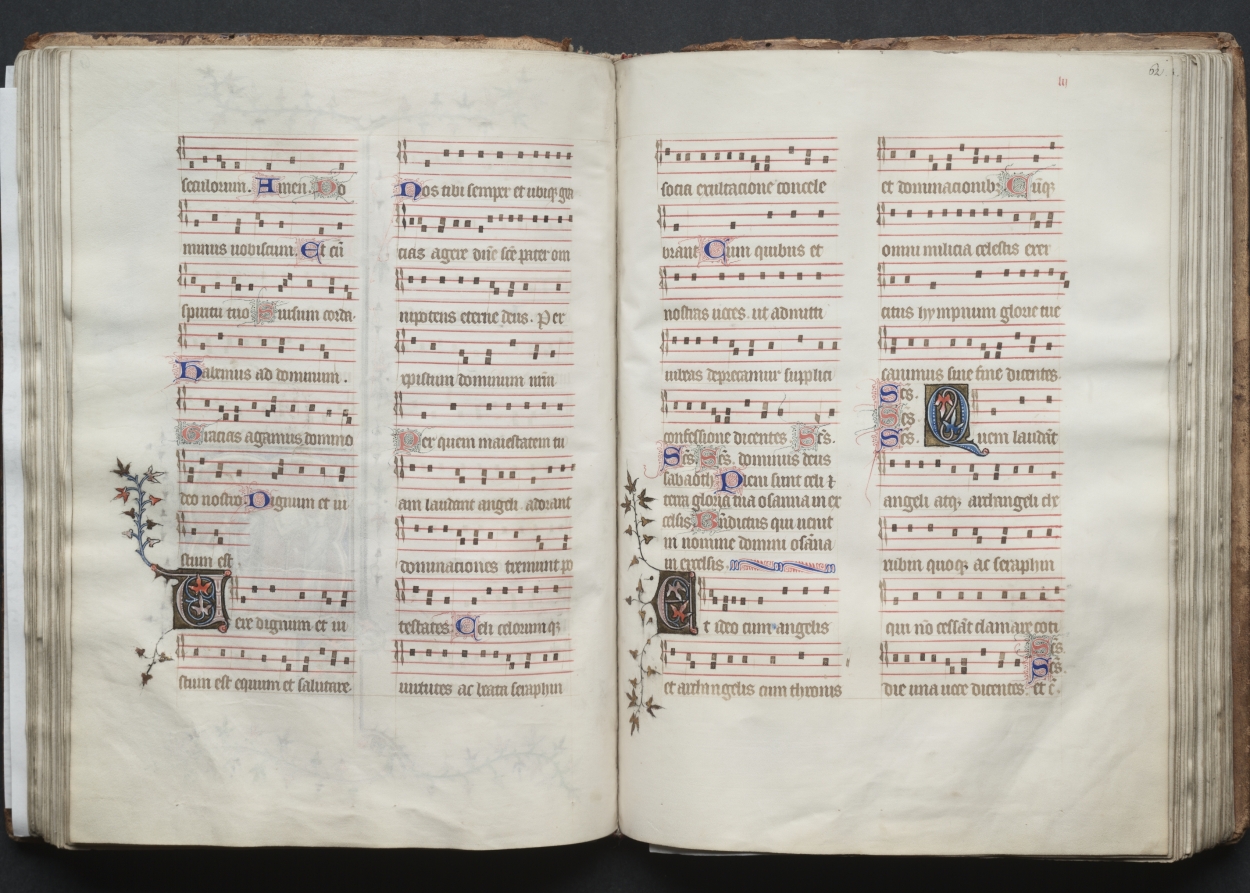 seculorum. Amen. Do
minus uobiscum. Et cū
spiritu tuo Sursum corda.
Habemus ad dominum.
Gracias agamus domino
deo nostro. Dignum et iu
stum est
Uere dignum et iu
stum est equum et salutare.
Nos tibi semper et ubiqꝫ gra
cias agere dñe sc̄e pater om
nipotens eterne deus. Per
xpistum dominum nr̄m
Per quem maiestatem tu
am laudant angeli. adorant
dominaciones tremunt po
testates. Celi celorumqꝫ
uirtutes ac beata seraphin
lij
62
socia exultacione concele
brant Cum quibus et
nostras uoces. ut admitti
iubeas deprecamur supplici
confessione dicentes Sc̄s.
Sc̄s. Sc̄s. dominus deus
sabaoth Pleni sunt celi ⁊
terra gloria tua osanna in ex
celsis Bn̄dictus qui uenit
in nomine domini osāna
in excelsis.
Et ideo cum angelis
et archangelis cum thronis
et dominacionibꝫ Cūqꝫ
omni milicia celestis exer
citus hympnum glorie tue
canimus sine fine dicentes.
Sc̄s.
Sc̄s.
Sc̄s.
Quem laudāt
angeli atqꝫ archangeli che
rubin quoqꝫ ac seraphin
qui nō cessāt clamare coti
Sc̄s.
Sc̄s.
die una uoce dicentes. et c̄.